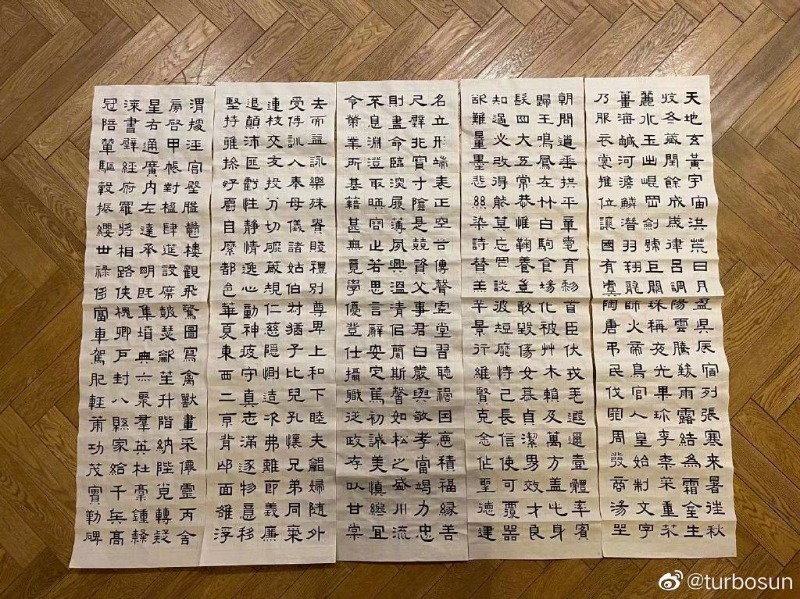 天地玄黃宇宙洪荒日月盈昃辰宿列張寒来暑往秋
收冬藏閏餘成歲律呂調陽雲騰致雨露結為霜金生
麗水玉出崐岡劍號巨闕珠稱夜光果珍李柰菜重芥
薑海鹹河淡鱗潛羽翔龍師火帝鳥官人皇始制文字
乃服衣裳推位讓國有虞陶唐弔民伐罪周發商湯坐
朝問道垂拱平章愛育黎首臣伏戎羌遐邇壹體率賓
歸王鳴鳳在竹白駒食場化被艸木賴及萬方蓋此身
髮四大五常恭惟鞠養豈敢毀傷女慕貞潔男效才良
知過必改得能莫忘罔談彼短靡恃己長信使可覆器
欲難量墨悲絲染詩讚羔羊景行維賢克念作聖德建
名立形端表正空谷傳聲虛堂習聽禍因惡積福緣善
尺璧非寶寸陰是競資父事君曰嚴與敬孝當竭力忠
則盡命臨深履薄夙興溫凊似蘭斯馨如松之盛川流
不息淵澄取映容止若思言辭安定篤初誠美慎終宜
令榮業所基籍甚無竟學優登仕攝職從政存以甘棠
去而益詠樂殊貴賤禮別尊卑上和下睦夫唱婦隨外
受傅訓入奉母儀諸姑伯叔猶子比兒孔懷兄弟同氣
連枝交友投分切磨箴規仁慈隱惻造次弗離節義廉
退顛沛匪虧性靜情逸心動神疲守真志滿逐物意移
堅持雅操好爵自縻都邑華夏東西二京背邙面雒浮
渭據涇宮殿盤鬱樓觀飛驚圖寫禽獸畫采僊靈丙舍
傍啓甲帳對楹肆筵設席鼓瑟龡笙升階納陛弁轉疑
星右通廣内左達承明既集墳典亦聚羣英杜稾鍾隸
漆書壁經府羅將相路俠槐卿戶封八縣家給千兵高
冠陪輦驅轂振纓世祿侈富車駕肥輕策功茂實勒碑
@turbosun